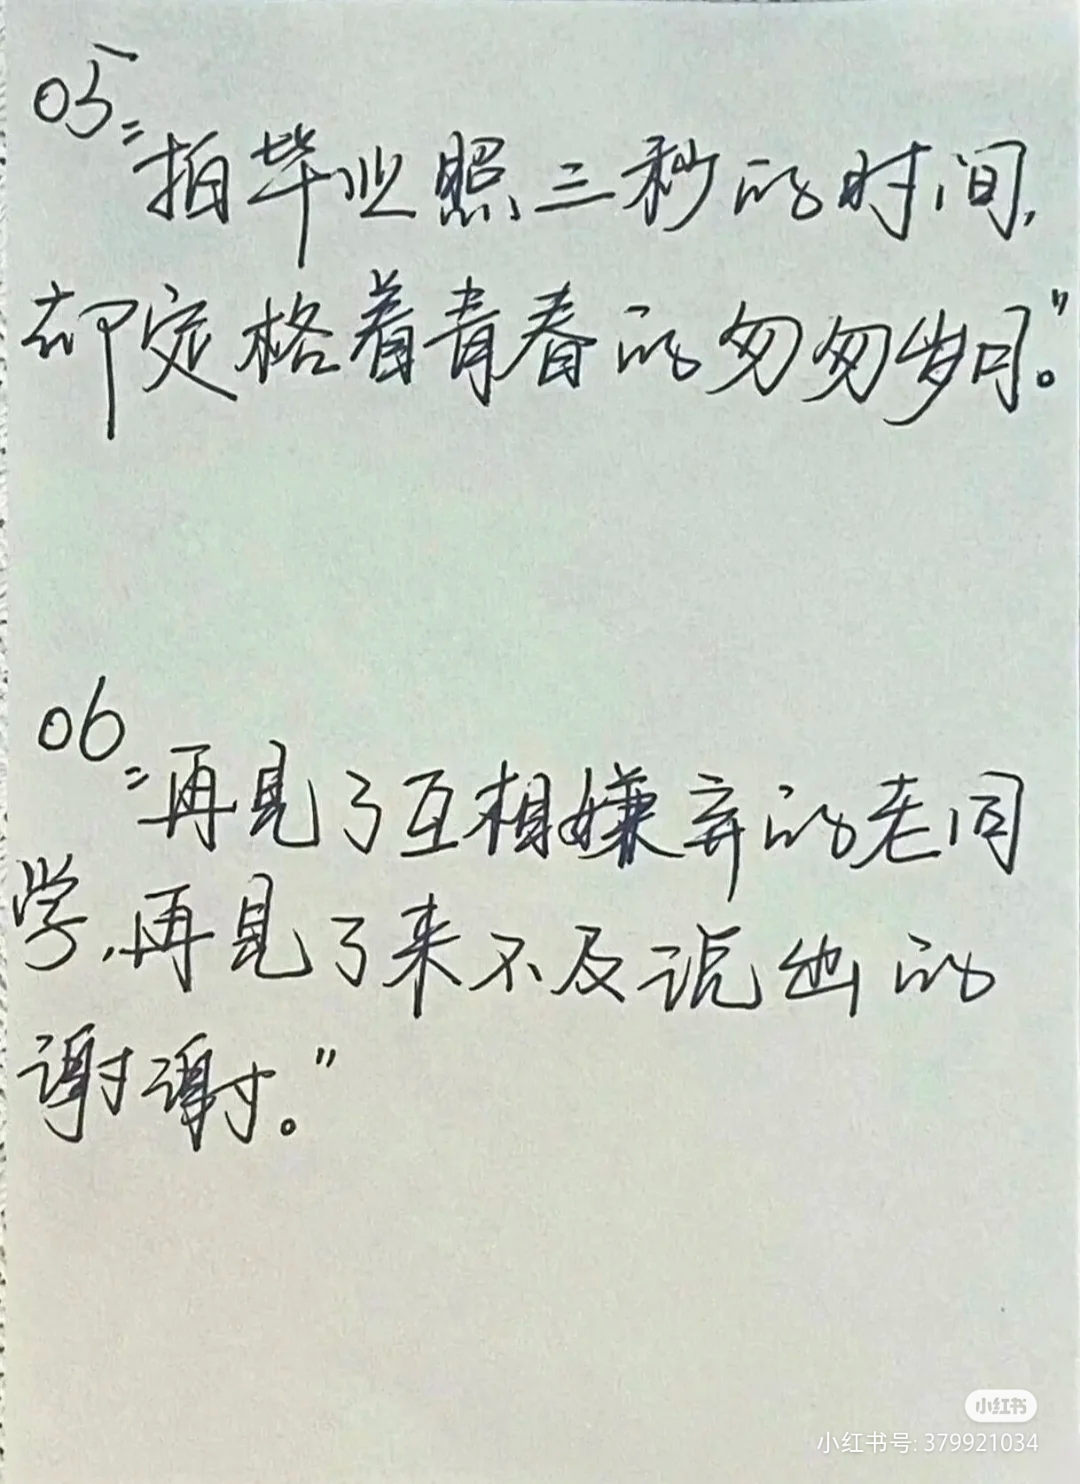 05
"拍毕业照三秒的时间,
却定格着青春的匆匆岁月。"
06
"再见了互相嫌弃的老同
学,再见了来不及说出的
谢谢。"
小红书
小红书号: 379921034